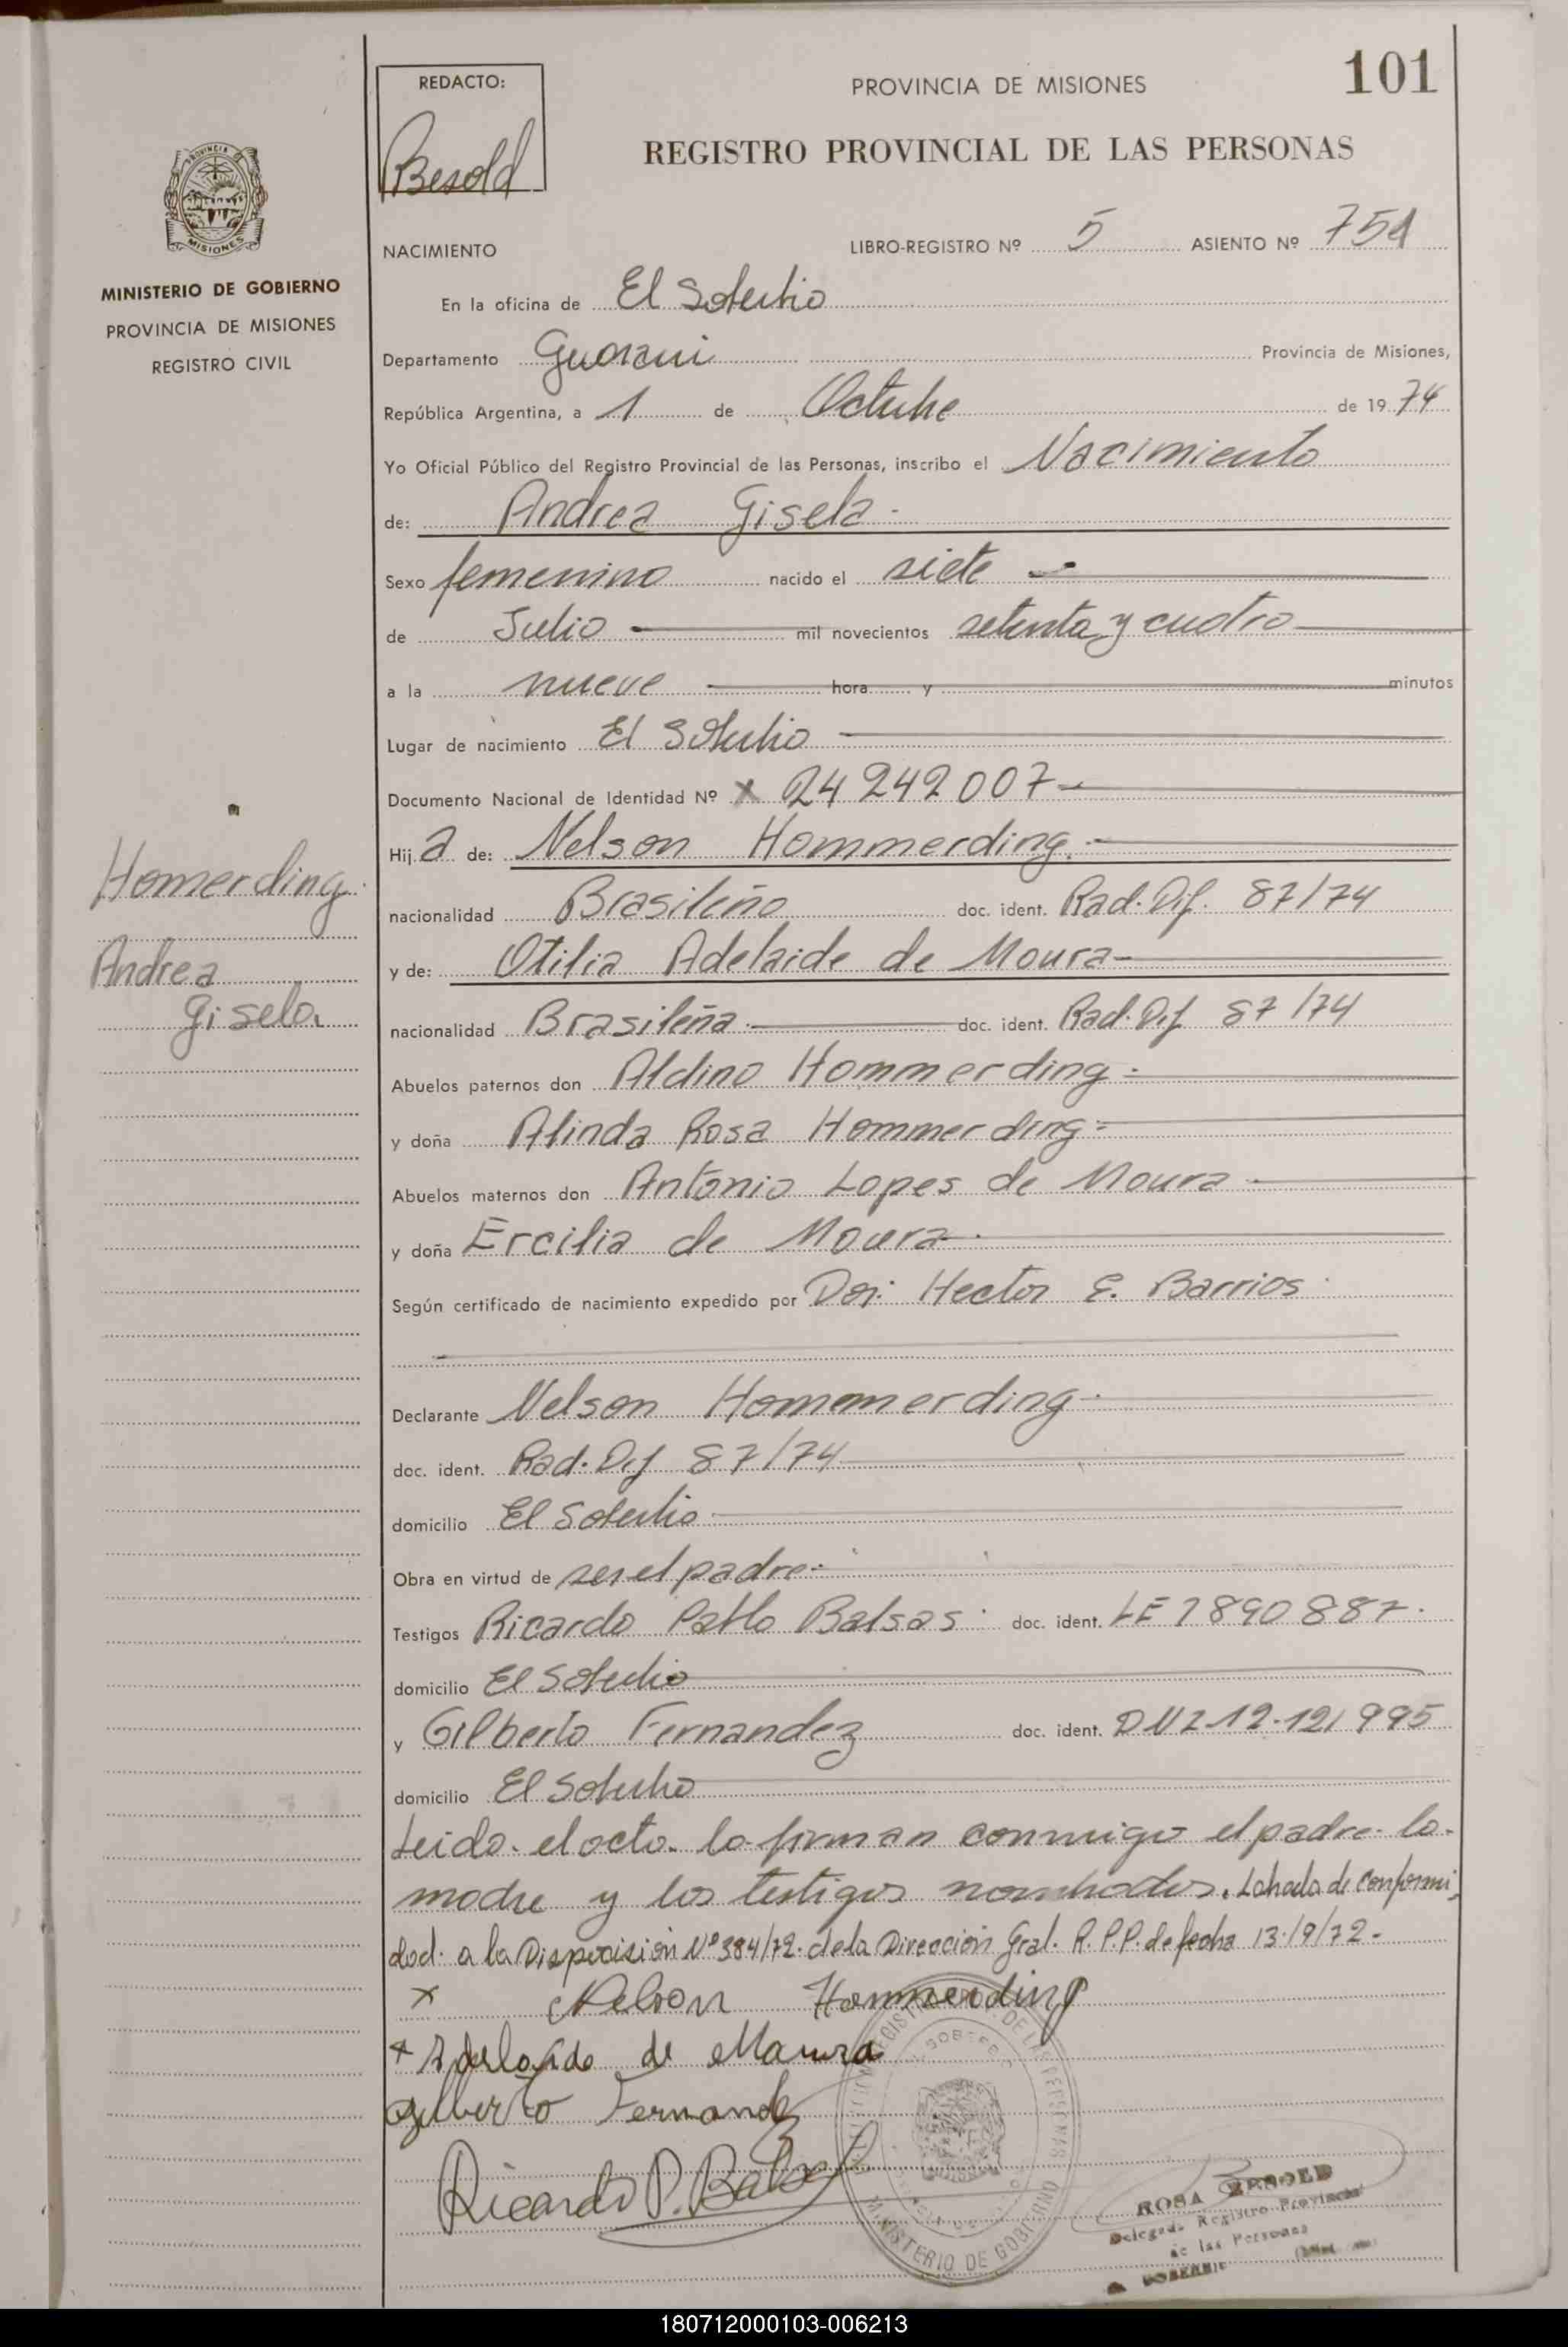 101
REDACTO:
Besold
PROVINCIA DE MISIONES
REGISTRO PROVINCIAL DE LAS PERSONAS
PROVINCIA
MISIONES
MINISTERIO DE GOBIERNO
PROVINCIA DE MISIONES
REGISTRO CIVIL
NACIMIENTO
LIBRO-REGISTRO Nº 5 ASIENTO Nº 751
En la oficina de El Soberbio
Departamento Guarani Provincia de Misiones,
República Argentina, a 1 de Octubre de 1974
Yo Oficial Público del Registro Provincial de las Personas, inscribo el Nacimiento
de: Andrea Gisela.
Sexo femenino nacido el siete
de Julio mil novecientos setenta y cuatro
a la nueve hora y minutos
Lugar de nacimiento El Soberbio
Documento Nacional de Identidad Nº X 24 242 007
Hija de: Nelson Hommerding.
Homerding.
nacionalidad Brasileño doc. ident. Rad. Dif. 87/74
y de: Otilia Adelaide de Moura
Andrea
Gisela.
nacionalidad Brasileña doc. ident. Rad. Dif 87/74
Abuelos paternos don Aldino Hommerding
y doña Alinda Rosa Hommerding
Abuelos maternos don Antonio Lopes de Moura
y doña Ercilia de Moura
Según certificado de nacimiento expedido por Dor: Hector E. Barrios
Declarante Nelson Hommerding
doc. ident. Rad. Dif 87/74
domicilio El Soberbio
Obra en virtud de ser el padre
Testigos Ricardo Pablo Balsas doc. ident. LE 7890887.
domicilio El Soberbio
y Gilberto Fernandez doc. ident. 12.121995
domicilio El Soberbio
Leido el acto lo firman conmigo el padre la
madre y los testigos nombrados. Labrada de conformi
dad a la Disposición Nº 384/72 de la Dirección Gral. R.P.P. de fecha 13/9/72.-
x Nelson Hommerding
x de Moura
Gilberto Fernandez
Ricardo P. Balsas
MINISTERIO DE GOBIERNO
ROSA BESOLD
Delegada Registro Provincial
de las Personas
180712000103-006213